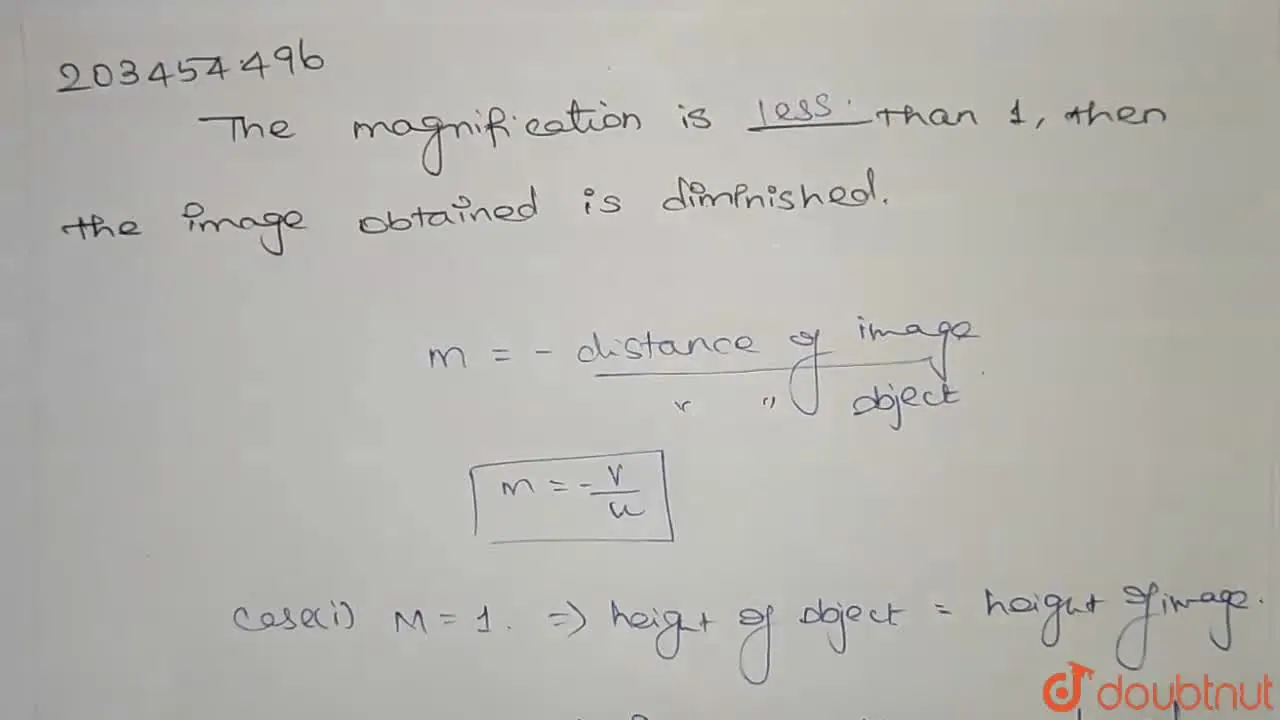 203454496
The magnification is less than 1, then
the image obtained is diminished.
m = - distance of image
" object
m = - v
u
case(i) M = 1. => height of object = height of image.
doubtnut